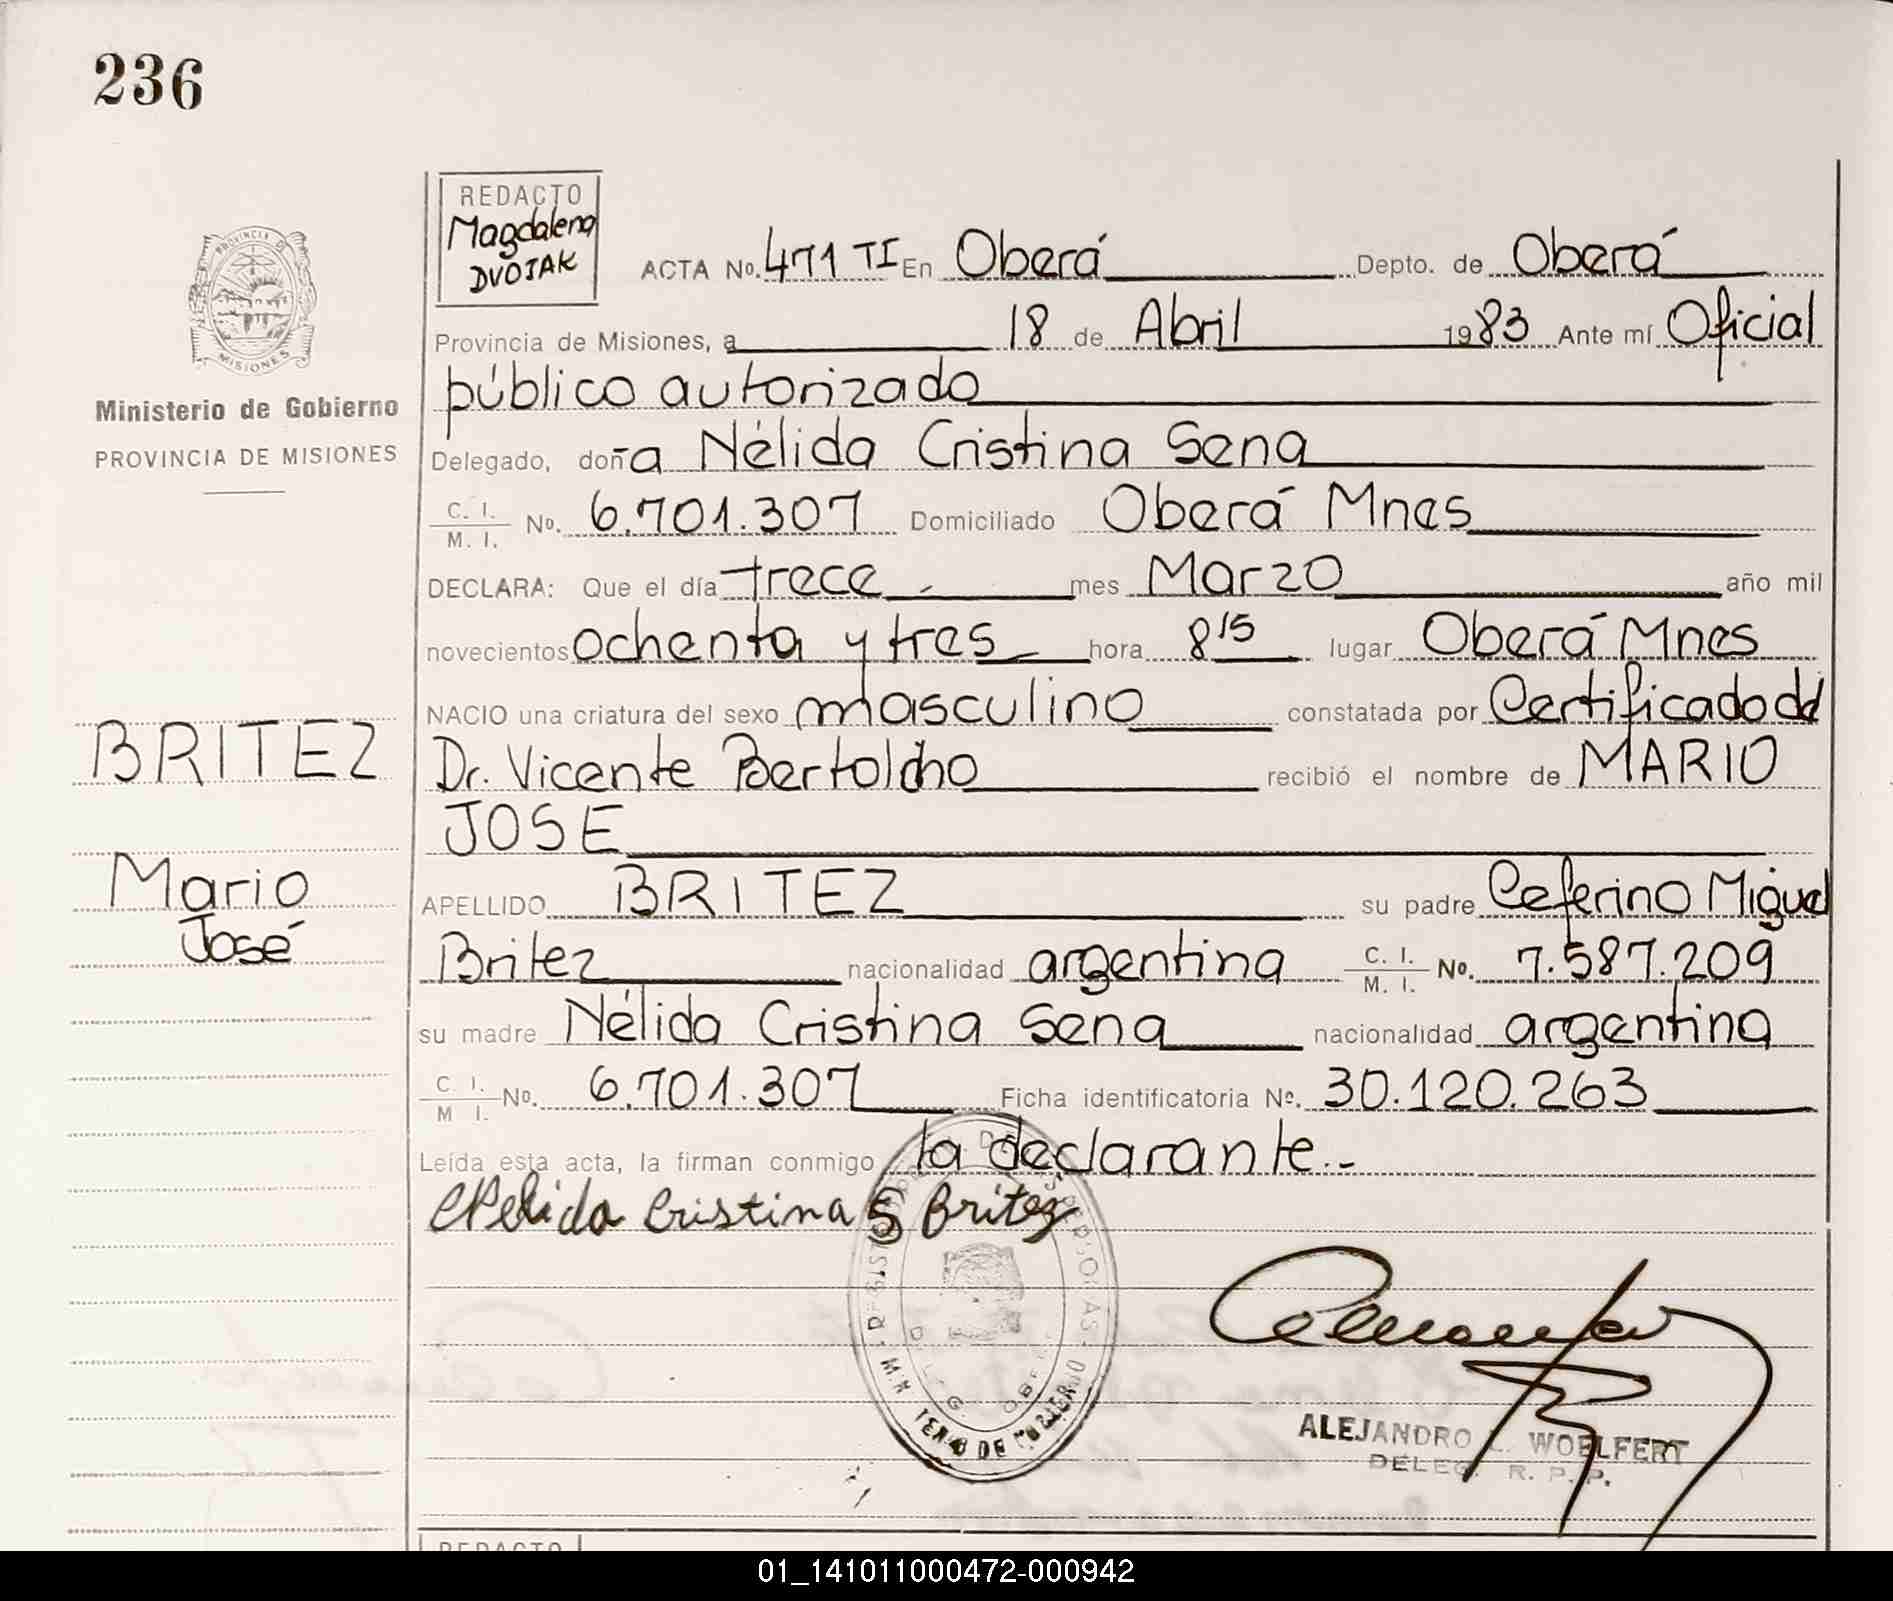 236
REDACTO
Magdalena
DVOJAK
ACTA No. 471 TI En Oberá Depto. de Oberá
Provincia de Misiones, a 18 de Abril 1983 Ante mí Oficial
público autorizado
Ministerio de Gobierno
PROVINCIA DE MISIONES
Delegado, doña Nélida Cristina Sena
C. I.
M. I. No. 6.701.307 Domiciliado Oberá Mnes
DECLARA: Que el día trece mes Marzo año mil
novecientos ochenta y tres hora 8 15 lugar Oberá Mnes
NACIO una criatura del sexo masculino constatada por Certificado del
BRITEZ
Dr. Vicente Bertoldo recibió el nombre de MARIO
JOSE
Mario
José
APELLIDO BRITEZ su padre Ceferino Miguel
Britez nacionalidad argentina C. I. M. I. No. 7.587.209
su madre Nélida Cristina Sena nacionalidad argentina
C. I.
M I. No. 6.701.307 Ficha identificatoria No. 30.120.263
Leída esta acta, la firman conmigo la declarante.-
Nelida Cristina S Britez
ALEJANDRO WOELFERT
DELEG. R. P. P.
REDACTO
01_141011000472-000942